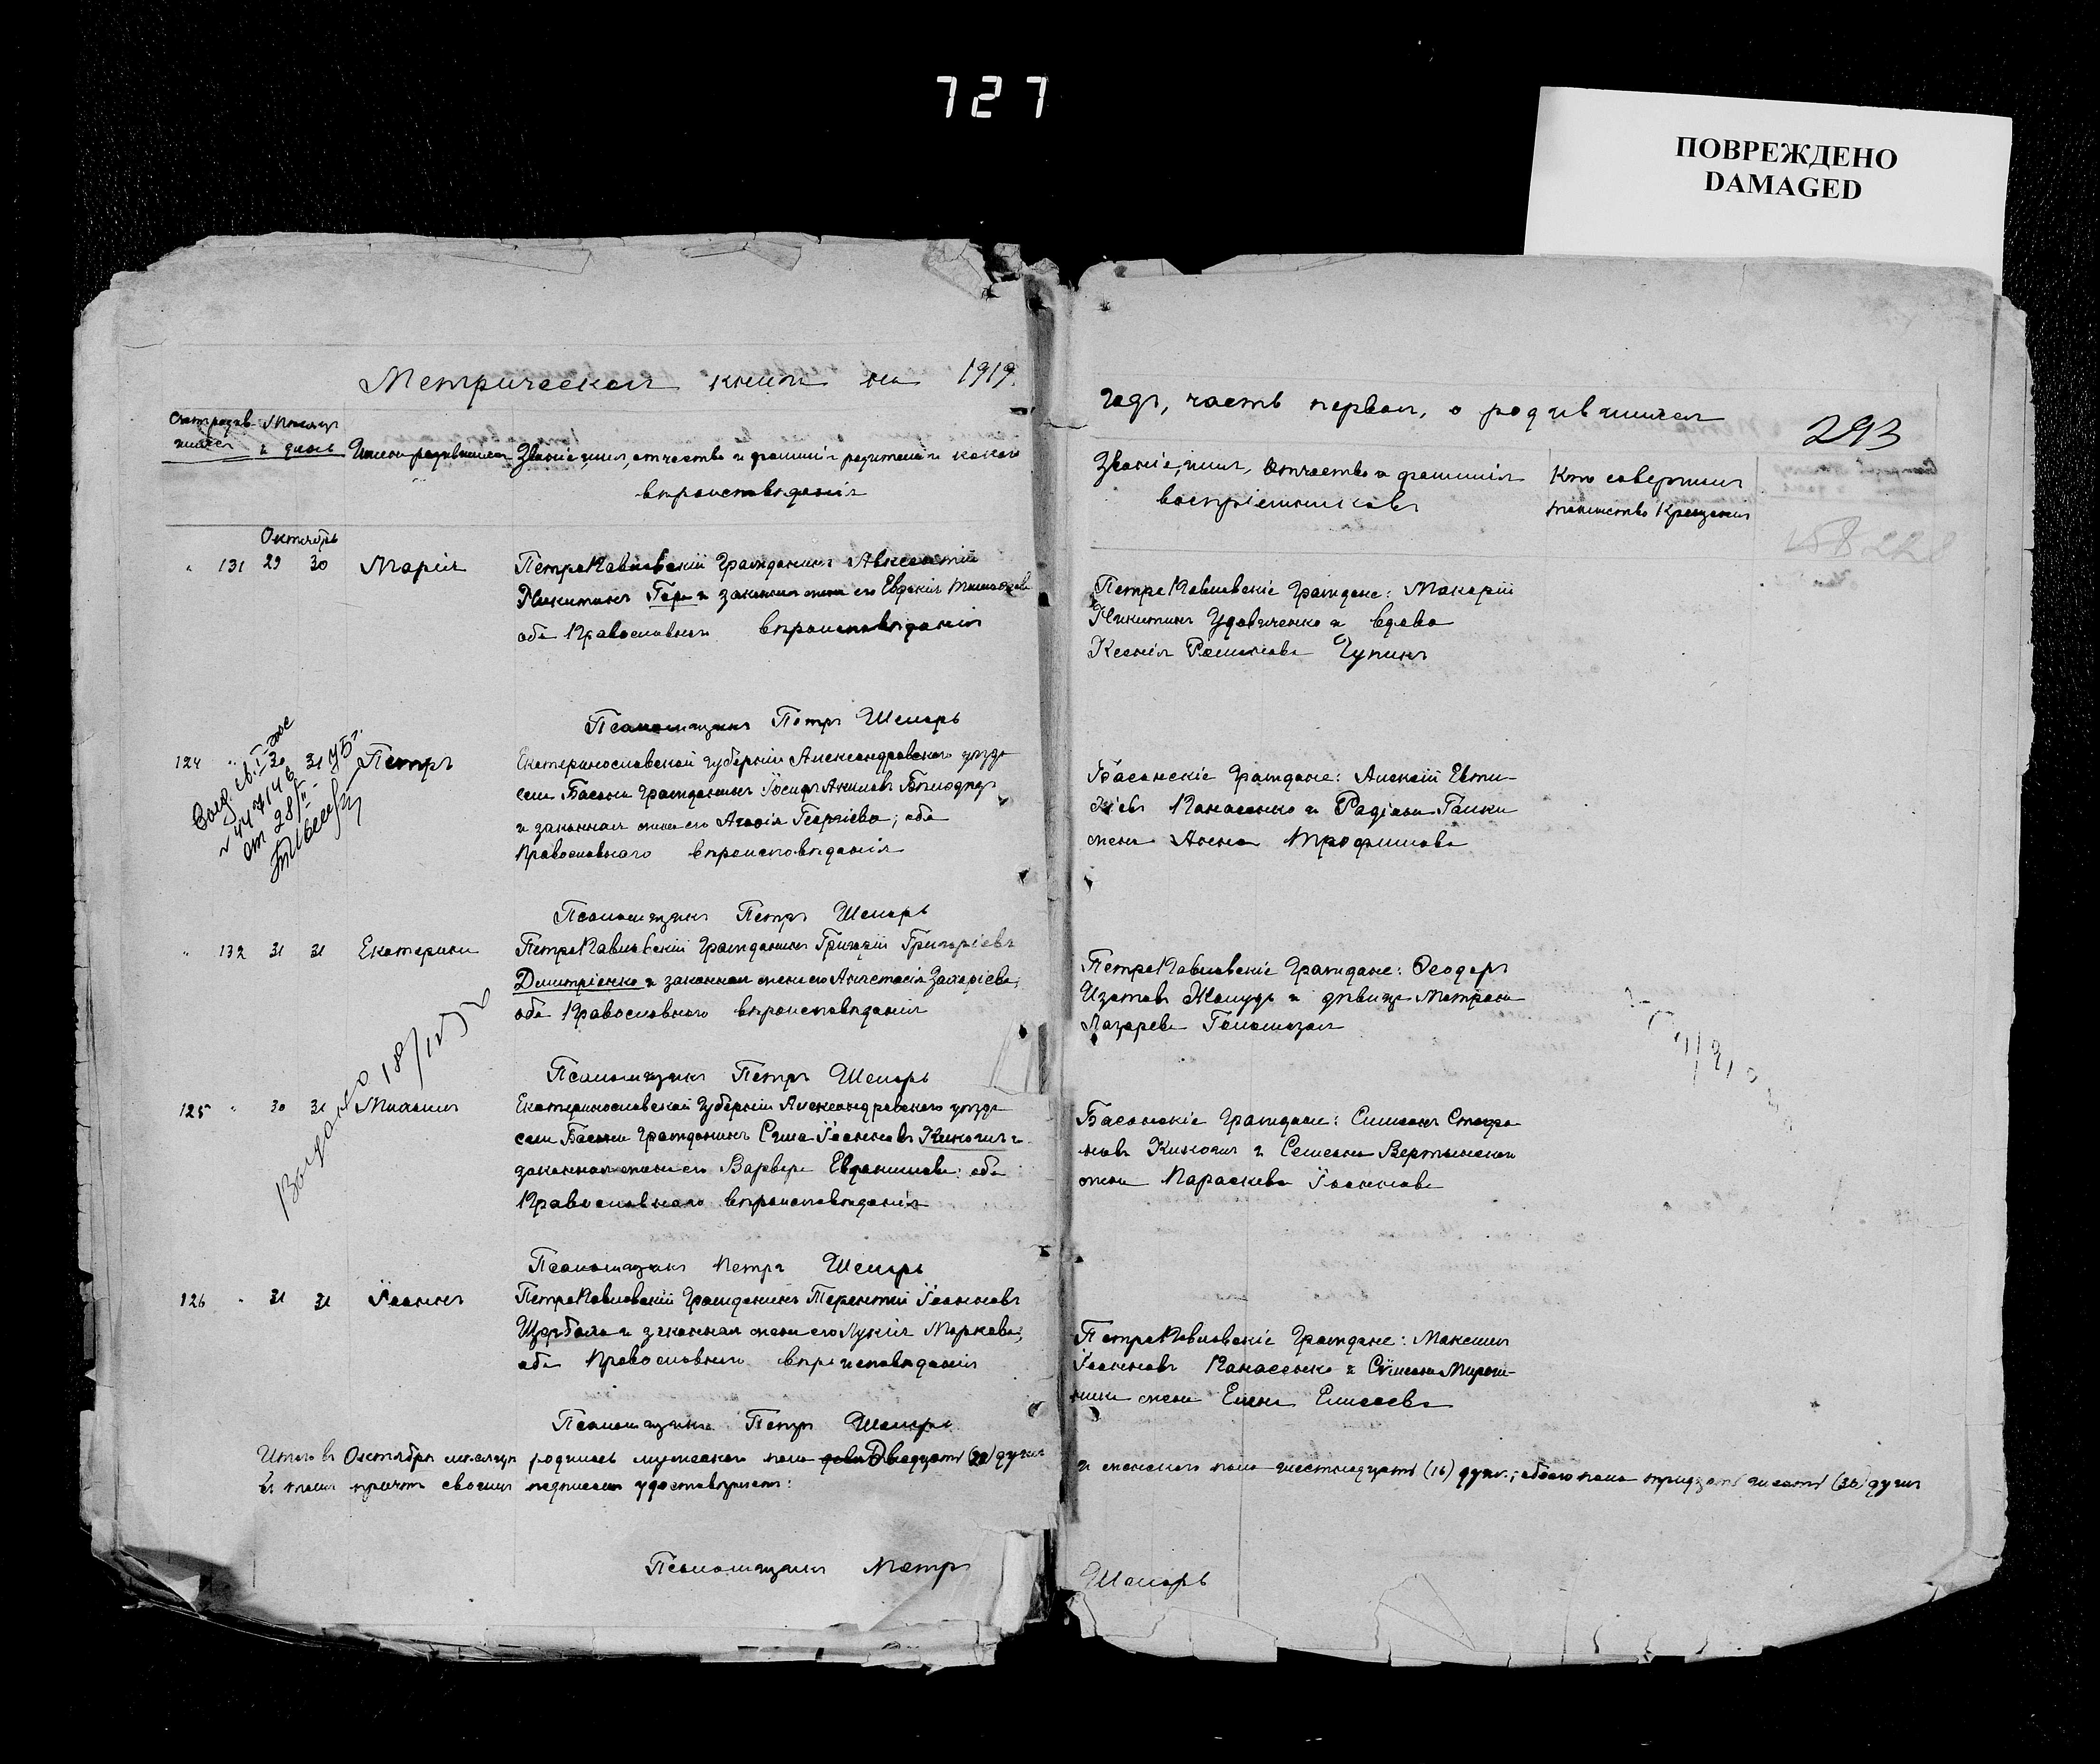 727
ПОВРЕЖДЕНО
DAMAGED
Метрическая книга на 1919
годъ, часть первая, о родившихся
293
Счетъ родив- Мѣсяцъ
шихся и день Имена родившихся Званіе, имя, отчество и фамилія родителей и какого
вѣроисповѣданія
Званіе, имя, отчество и фамилія
воспріемниковъ
Кто совершилъ
таинство Крещенія
Октябрь
131 29 30 Марія
ПетроПавловскій Гражданинъ Авксентій
Никитинъ Гора и законная жена его Евдокія
оба Православнаго вѣроисповѣданія
ПетроПавловскіе Граждане: Макарій
Никитинъ Удовиченко и вдова
Ксенія Романова Чупинъ
Псаломщикъ Петръ Шемарь
124 " 30 31 Петръ
Екатеринославской губерніи Александровскаго уѣзда
села Басани Гражданинъ Іосифъ Акимовъ
и законная жена его Агафія Георгіева; оба
Православнаго вѣроисповѣданія
Басанскіе Граждане: Алексій Евти-
хіевъ Панасенко и Радіона Галки
жена Анна Трофимова
Псаломщикъ Петръ Шемарь
" 132 31 31 Екатерина
ПетроПавловскій Гражданинъ Григорій Григоріевъ
Дмитріенко и законная жена его Анастасія Захаріева;
оба Православнаго вѣроисповѣданія
ПетроПавловскіе Граждане: Ѳеодоръ
Изотовъ Жолудь и дѣвица Матрона
Лазарева
Псаломщикъ Петръ Шемарь
125 " 30 31 Михаилъ
Екатеринославской Губерніи Александровскаго уѣзда
села Басани Гражданинъ Савва Іоанновъ
законная жена его Варвара Евфимова: оба
Православнаго вѣроисповѣданія
Басанскіе Граждане: Симеонъ Стефа-
новъ и Семена
жена Параскева Іоаннова
Выдано 18/IV 52
Псаломщикъ Петръ Шемарь
126 " 31 31 Іоаннъ
ПетроПавловскій Гражданинъ Терентій Іоанновъ
Щербина и законная жена его Лукія Маркова;
оба Православнаго вѣроисповѣданія
ПетроПавловскіе Граждане: Максимъ
Іоанновъ Панасенко и Симеона Мирош-
ника жена Елена Елисеева
Псаломщикъ Петръ Шемарь
Итого въ Октябрѣ мѣсяцѣ родилось мужескаго пола Двадцать (20) душъ
и женскаго пола шестнадцать (16) душъ; обоего пола тридцать шесть (36) душъ
въ чемъ причтъ своимъ подписомъ удостовѣряетъ:
Псаломщикъ Петръ Шемарь